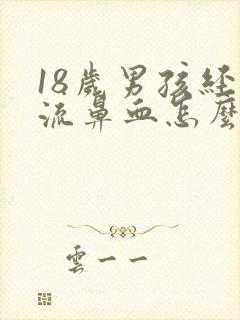 18歲男孩經
流鼻血怎麼
雲一一